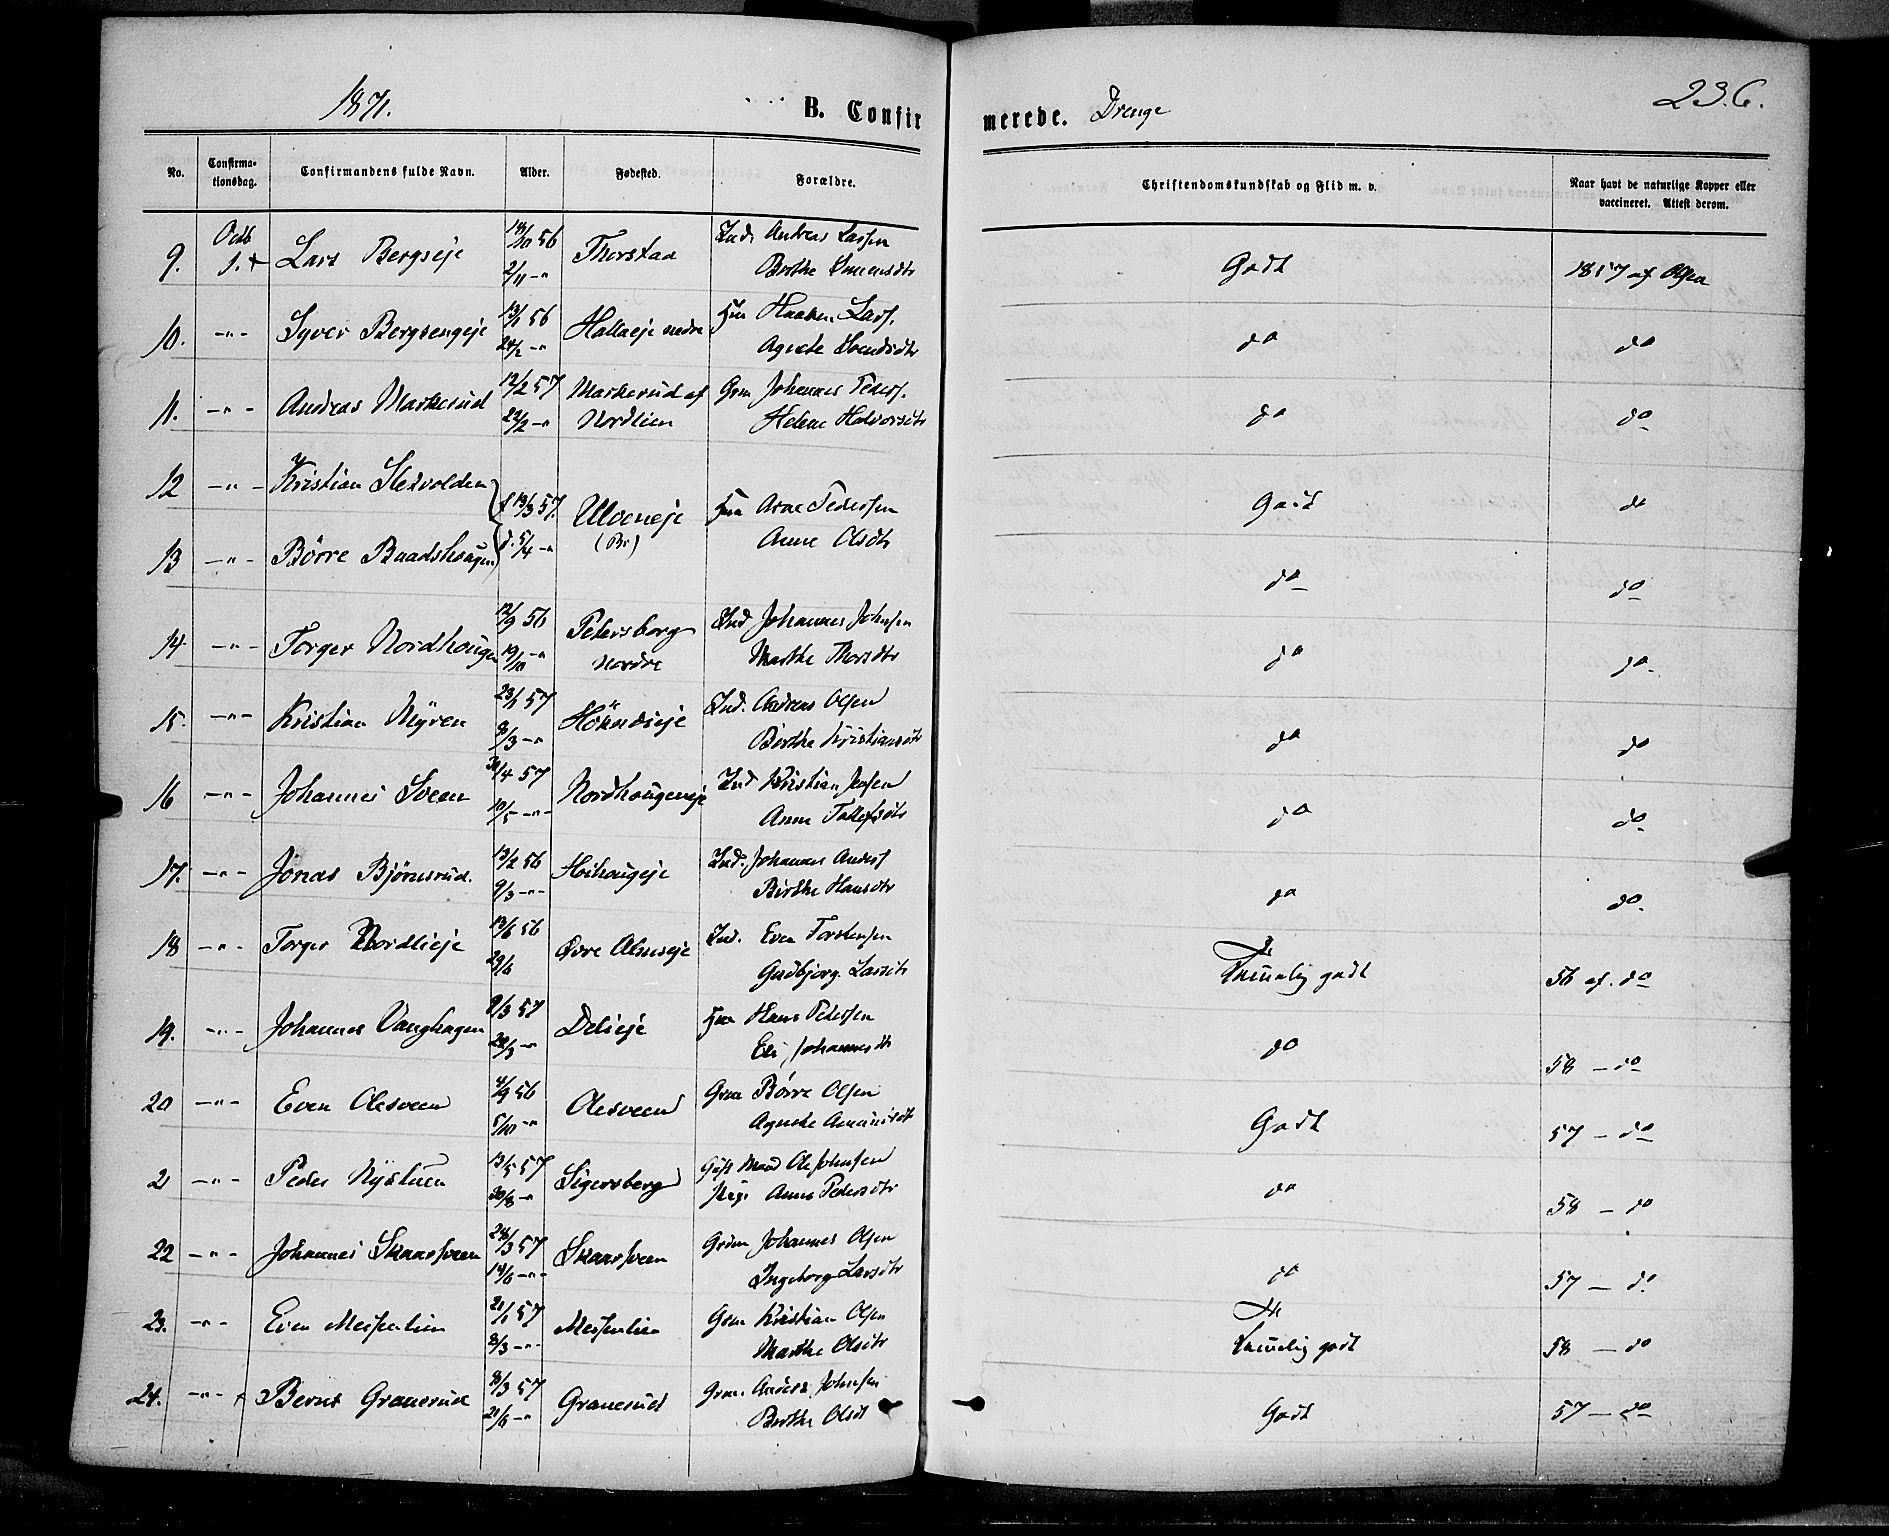 1871.
B. Confirmerede. Drenge
236.
No. Confirmationsdag. Confirmandens fulde Navn. Alder. Fødested. Forældre. Christendomskundskab og Flid m. v. Naar havt de naturlige Kopper eller vaccineret. Attest derom.
9. Octb 1. Lars Bergseje 18/10 56 2/11 -"- Thorstad Ind. Andreas Larsen Berthe Simensdtr Godt 1857 af Olsen
10. -"- Syver Bergsengeje 13/1 56 24/2 -"- Hallaeje nedre Hm Haaken Lars. Agnete Svendsdtr do do
11. -"- Andreas Markerud 12/2 57 22/2 -"- Markerud af Nordlien Grm Johannes Peders. Helene Halvorsdtr do do
12 -"- Kristian Stedvolden f 13/3 57. d. 5/4 -"- Ulveneje (Br) Hm Arne Pedersen Anne Olsdtr Godt do
13 -"- Børre Baadshaugen do do
14 -"- Torger Nordhougen 12/9 56 19/10 -"- Petersborg nordre Ind Johannes Johnsen Marthe Thorsdtr do do
15. -"- Kristian Myren 23/1 57 8/3 -"- Ind. Andreas Olsen Berthe Kristiansdtr do do
16 -"- Johannes Sveen 30/4 57 10/5 -"- Nordhougeneje Ind Kristian Jensen Anne Tollefsdtr do do
17. -"- Jonas Bjørnerud. 13/2 56 9/3 -"- Hoihougeje Ind. Johannes Anders Birthe Hansdtr do do.
18 -"- Torger Nordlieje 13/6 56 29/6 Øvre Almseje Ind. Even Torstensen Gudbjorg Larsdtr Temmelig godt 56 af. do
19. -"- Johannes Vanghagen 9/3 57 22/3 -"- Delieje Hm Hans Pedersen Eli Johannesdtr do 58 - do
20 -"- Even Olesveen 4/9 56 5/10 -"- Olesveen Grm Børre Olsen Agnethe Amundsdt Godt 57 - do
2 -"- Peder Nystuen 13/5 57 30/8 -"- Sigersberg Gift Mand Ole Johnsen Pige Anne Pedersdtr do 58 - do
22 -"- Johannes Skaarsveen 24/3 57 14/6 -"- Skaarsveen Grdm Johannes Olsen Ingeborg Larsdtr do 57 - do
23. -"- Even Meisenlien 21/1 57 8/3 -"- Meisenlien Grm Kristian Olsen Marthe Olsdtr Temmelig godt 58 - do
24. -"- Bernt Granerud 8/3 57 21/6 -"- Granerud Grm. Anders Johnsen Berthe Olsdt Godt 57 - do